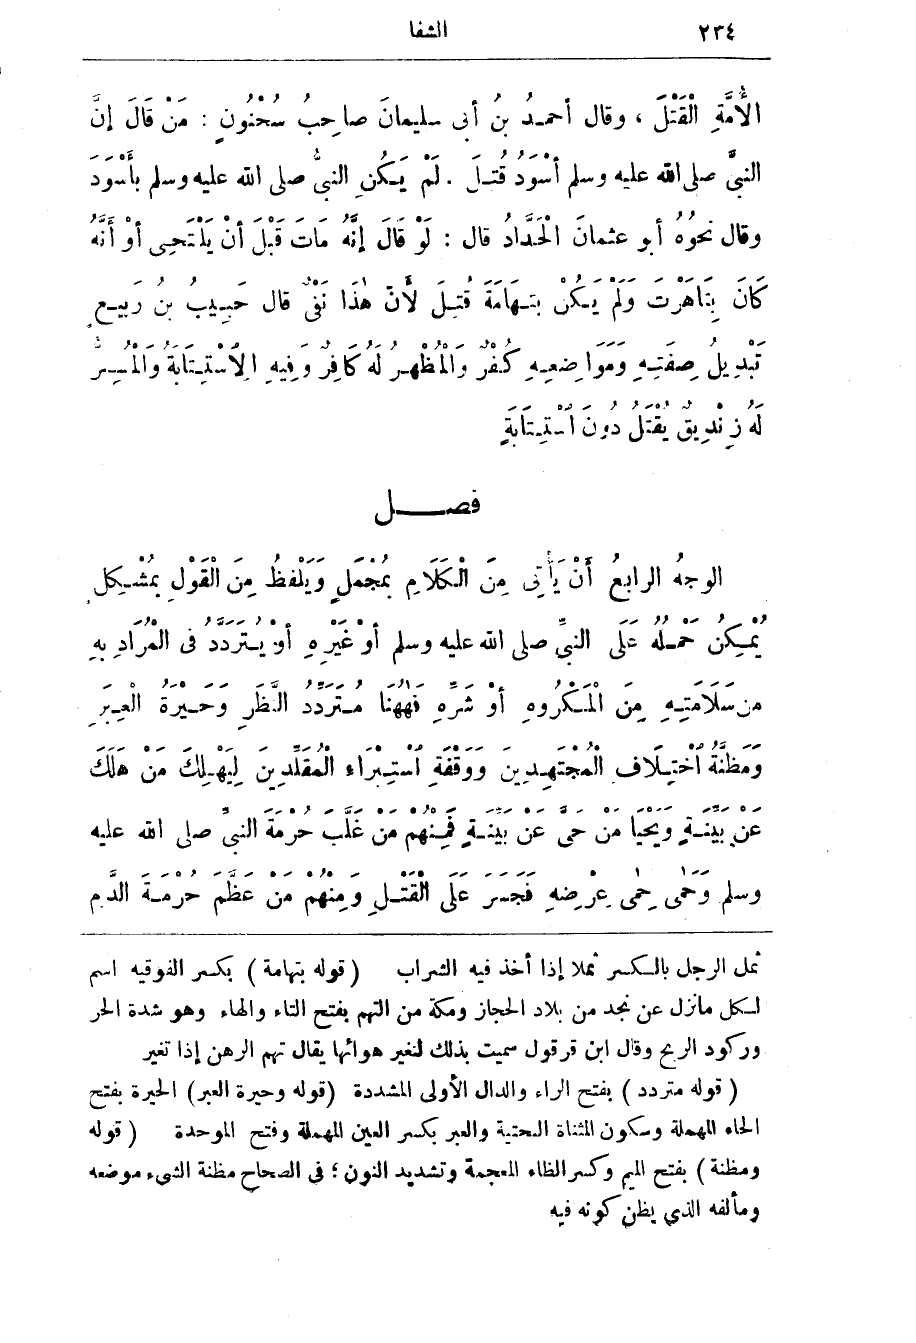 ٢٣٤
الشفا
الْأُمَّةِ الْقَتْلَ ، وقال أحمدُ بنُ أبى سليمانَ صاحِبُ سُحْنُونٍ : مَنْ قَالَ إنَّ
النبىَّ صلى الله عليه وسلم أَسْوَدُ قُتِلَ . لَمْ يَكُنِ النبىُّ صلى الله عليه وسلم بِأَسْوَدَ
وقال نحوُهُ أبو عثمانَ الْحَدَّادُ قال : لَوْ قَالَ إنَّهُ مَاتَ قَبْلَ أَنْ يَلْتَحِىَ أوْ أَنَّهُ
كَانَ بِتَاهَرْتَ وَلَمْ يَكُنْ بِتِهَامَةَ قُتِلَ لأَنَّ هٰذَا نَفْىٌ قال حَبِيبُ بنُ رَبِيعٍ
تَبْدِيلُ صِفَتِهِ وَمَوَاضِعِهِ كُفْرٌ وَالْمُظْهِرُ لَهُ كَافِرٌ وَفِيهِ الِاسْتِتَابَةُ وَالْمُسِرُّ
لَهُ زِنْدِيقٌ يُقْتَلُ دُونَ اسْتِتَابَةٍ
فصل
الوجهُ الرابعُ أَنْ يَأْتِىَ مِنَ الْكَلَامِ بِمُجْمَلٍ وَيَلْفِظُ مِنَ الْقَوْلِ بِمُشْكِلٍ
يُمْكِنُ حَمْلُهُ عَلَى النبىِّ صلى الله عليه وسلم أَوْ غَيْرِهِ أَوْ يُتَرَدَّدُ فى الْمُرَادِ بِهِ
مِن سَلَامَتِهِ مِنَ الْمَكْرُوهِ أَوْ شَرِّهِ فَهٰهُنَا مُتَرَدَّدُ النَّظَرِ وَحَيْرَةُ الْعِبَرِ
وَمَظِنَّةُ اخْتِلَافِ الْمُجْتَهِدِينَ وَوَقْفَةِ اسْتِبْرَاءِ الْمُقَلِّدِينَ لِيَهْلِكَ مَنْ هَلَكَ
عَنْ بَيِّنَةٍ وَيَحْيَا مَنْ حَىَّ عَنْ بَيِّنَةٍ فَمِنْهُمْ مَنْ غَلَّبَ حُرْمَةَ النبىِّ صلى الله عليه
وسلم وَحَمَى حِمَى عِرْضِهِ فَجَسَرَ عَلَى الْقَتْلِ وَمِنْهُمْ مَنْ عَظَّمَ حُرْمَةَ الدَّمِ
ثمل الرجل بالكسر ثملا إذا أخذ فيه الشراب ( قوله بتهامة ) بكسر الفوقيه اسم
لكل مانزل عن نجد من بلاد الحجاز ومكة من التهم بفتح التاء والهاء وهو شدة الحر
وركود الريح وقال ابن قرقول سميت بذلك لتغير هوائها يقال تهم الرهن إذا تغير
( قوله متردد ) بفتح الراء والدال الأولى المشددة (قوله وحيرة العبر) الحيرة بفتح
الحاء المهملة وسكون المثناة التحتية والعبر بكسر العين المهملة وفتح الموحدة ( قوله
ومظنة ) بفتح الميم وكسر الظاء المعجمة وتشديد النون ؛ فى الصحاح مظنة الشىء موضعه
ومألفه الذي يظن كونه فيه